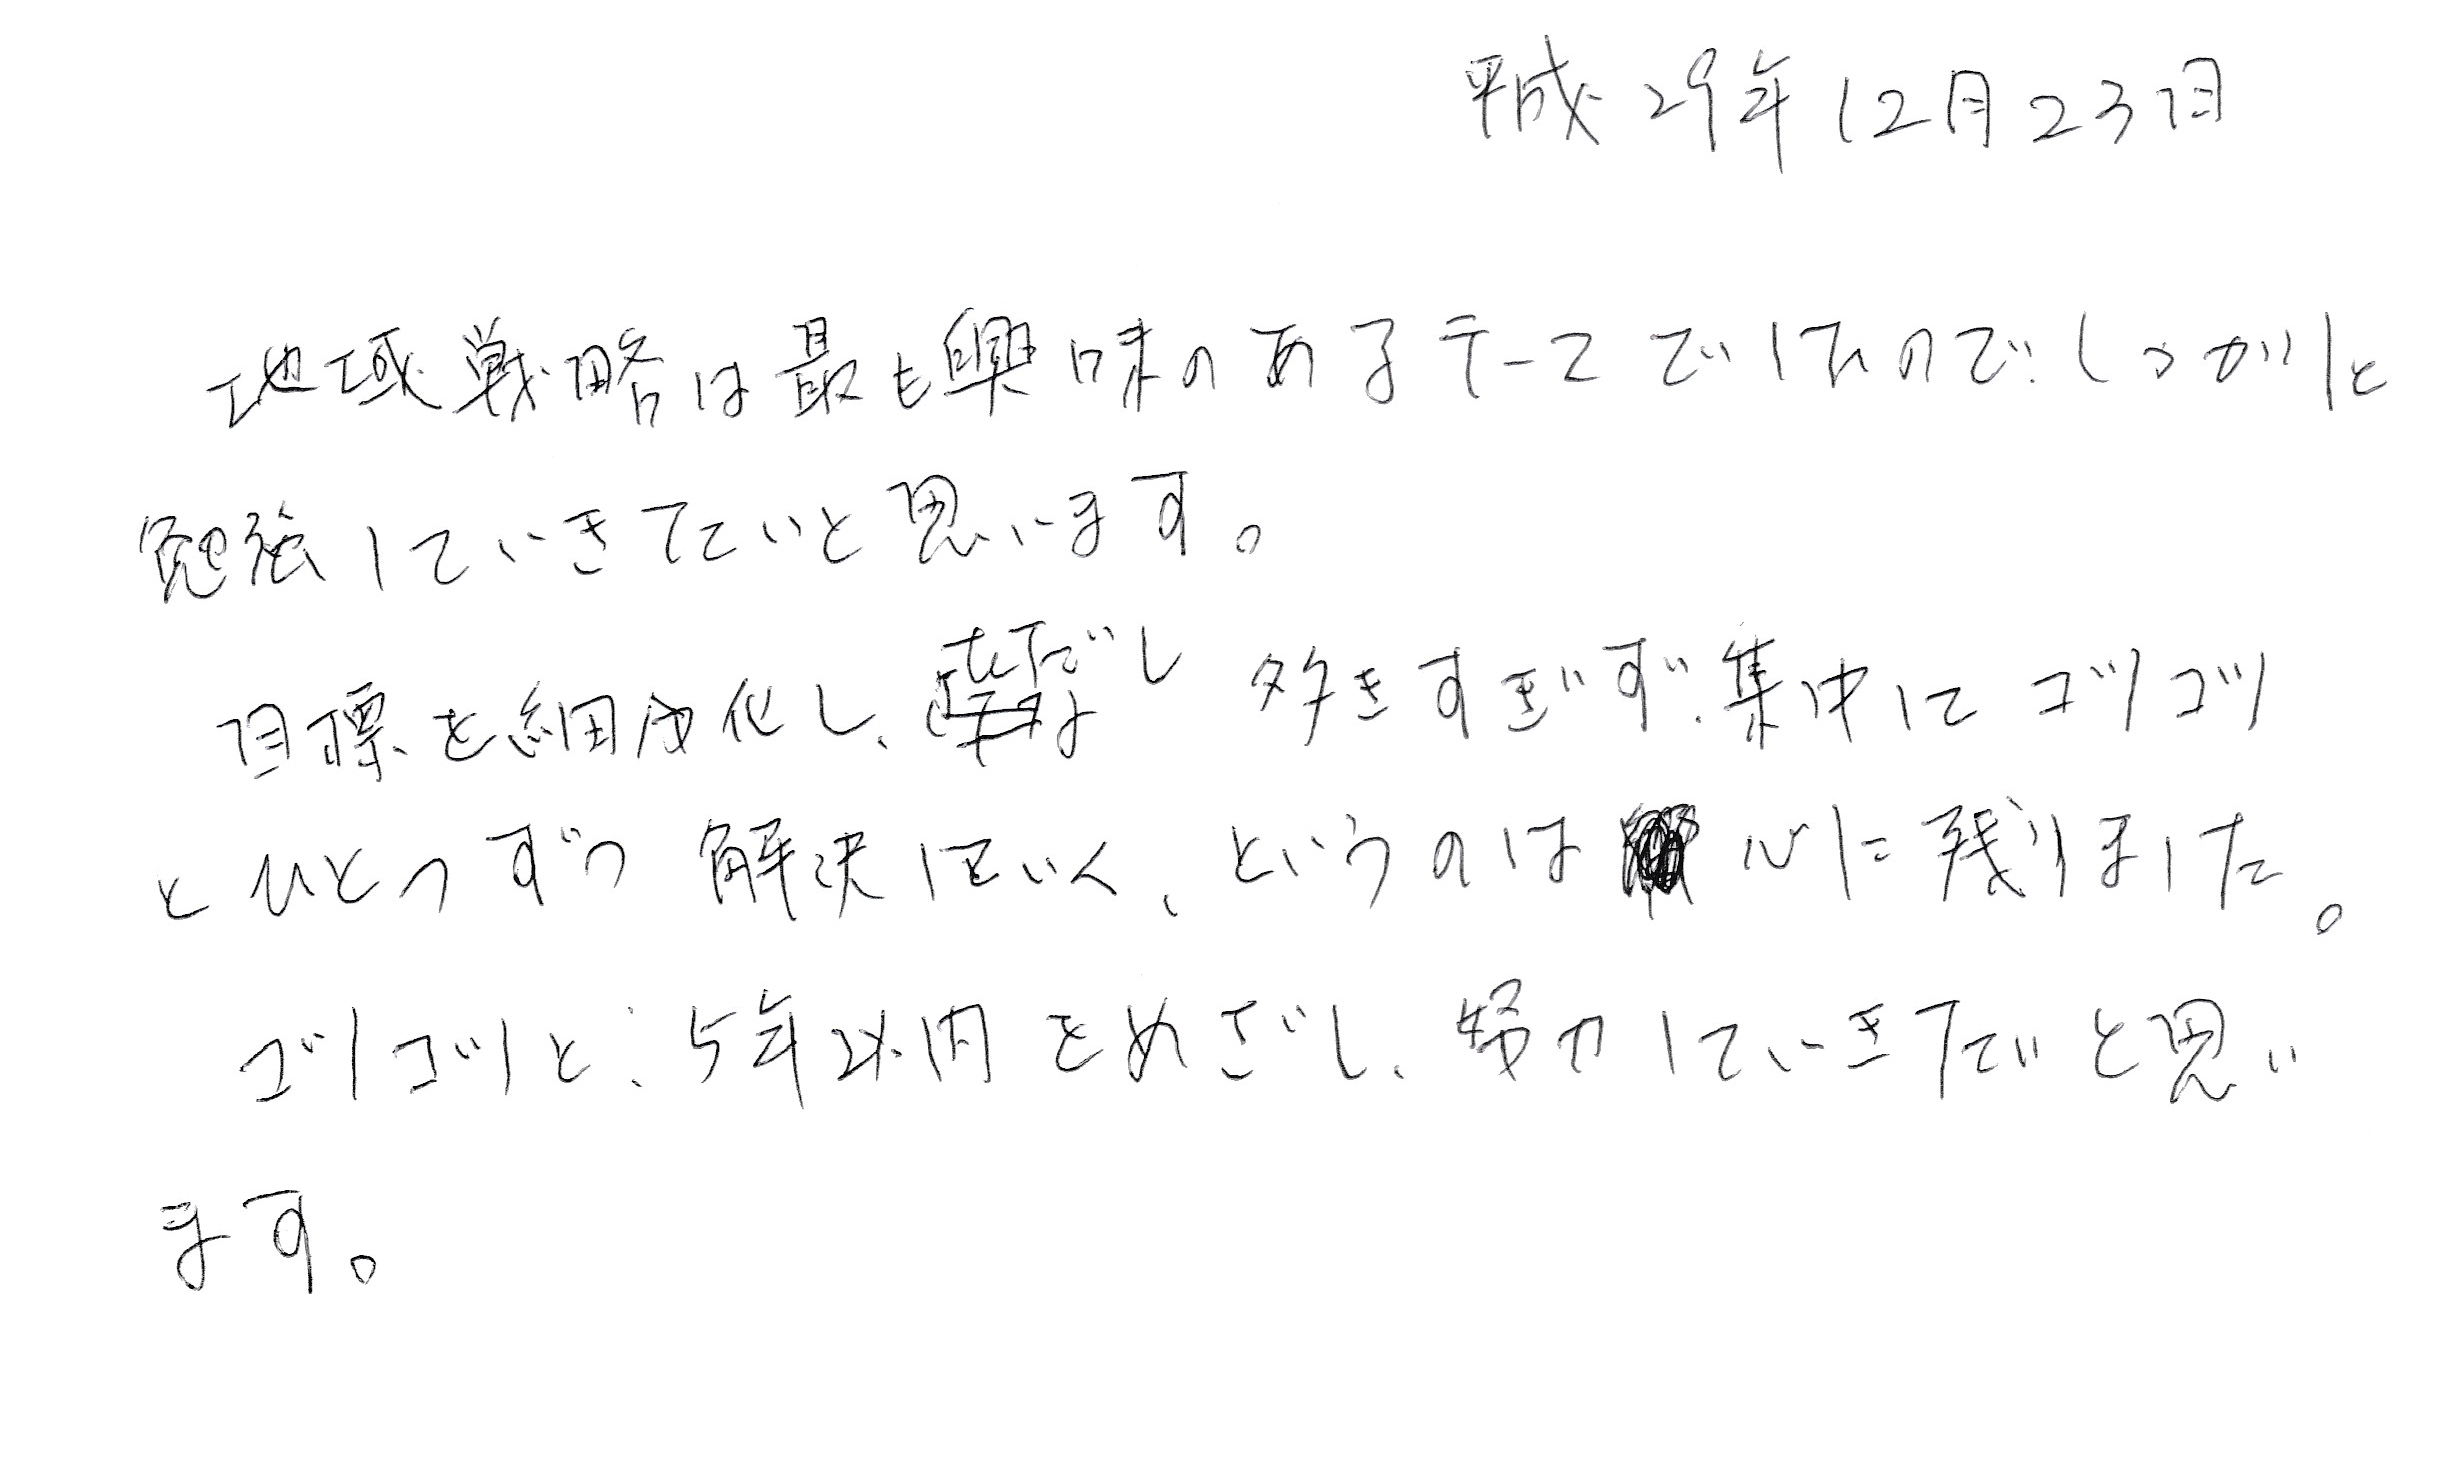 平成29年12月23日
地域戦略は最も興味のあるテーマでしたので、しっかりと
勉強していきたいと思います。
目標を細分化し、ただし 多きすぎず、集中して コツコツ
とひとつずつ 解決していく、というのは 心に残りました。
コツコツと、5年以内をめざし、努力していきたいと思い
ます。